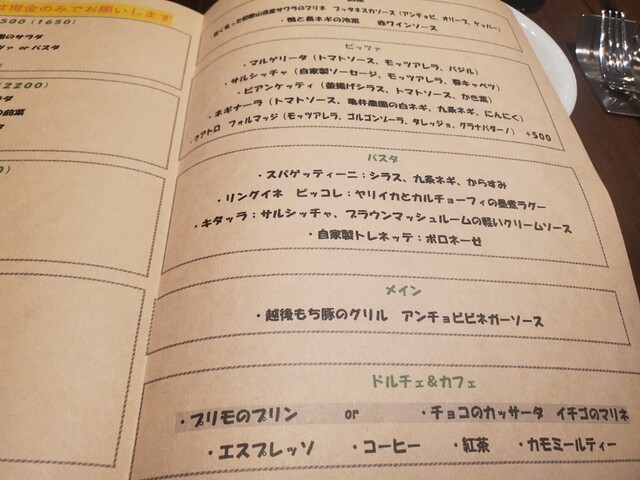 は現金のみでお願いします
500（1650）
のサラダ
ツァ or パスタ
（2200）
の前菜
前菜
軽く炙った和歌山県産サワラのマリネ　プッタネスカソース（アンチョビ、オリーブ、ケッパー）
・鴨と長ネギの冷菜　赤ワインソース
ピッツァ
・マルゲリータ（トマトソース、モッツアレラ、バジル）
・サルシッチャ（自家製ソーセージ、モッツアレラ、春キャベツ）
・ビアンケッティ（釜揚げシラス、トマトソース、かき菜）
・ネギナーラ（トマトソース、亀井農園の白ネギ、九条ネギ、にんにく）
・クアトロ　フォルマッジ（モッツアレラ、ゴルゴンゾーラ、タレッジョ、グラナパダーノ）　+500
パスタ
・スパゲッティーニ：シラス、九条ネギ、からすみ
・リングイネ　ピッコレ：ヤリイカとカルチョーフィの墨煮ラグー
・キタッラ：サルシッチャ、ブラウンマッシュルームの軽いクリームソース
・自家製トレネッテ：ボロネーゼ
メイン
・越後もち豚のグリル　アンチョビビネガーソース
ドルチェ&カフェ
・プリモのプリン　or　・チョコのカッサータ　イチゴのマリネ
・エスプレッソ　・コーヒー　・紅茶　・カモミールティー